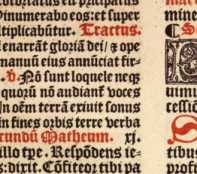 Dinumerabo eos: et super
tiplicabūtur. Tractus.
enarrāt gloriā dei / ⁊ ope
manuū eius annūciat fir-
. v. Nō sunt loquele neq̄
quorū nō audiant̄ voces
In oēm terrā exiuit sonus
in fines orbis terre verba
cundū Matheum. xj.
illo tp̄e. Respōdens ie-
s: dixit. Cōfiteor tibi pa
mine
uimu
cessiō
tibus